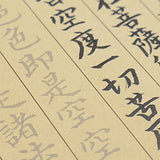 菩薩
空度一切苦
色即是空空
是諸法